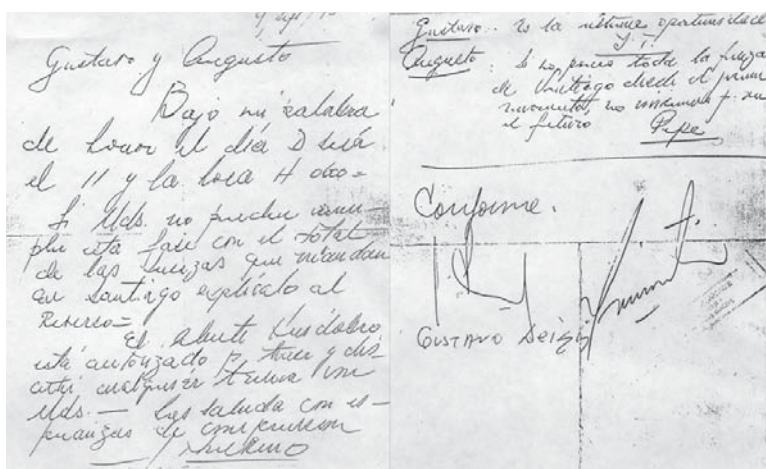 9 Sept/73
Gustavo y Augusto
Bajo mi palabra
de honor el día D será
el 11 y la hora H 0600=
Si Uds. no pueden cum-
plir esta fase con el total
de las fuerzas que mandan
en Santiago explícalo al
Reverso=
El Almte Huidobro
está autorizado p. traer y dis-
cutir cualquier tema con
Uds. — Les saluda con es-
peranzas de comprensión
Merino
Gustavo: Es la última oportunidad
J.T.
Augusto: Si no pones toda la fuerza
de Santiago desde el primer
momento, no viviremos p. ver
el futuro
Pepe
Conforme.
GUSTAVO Leigh